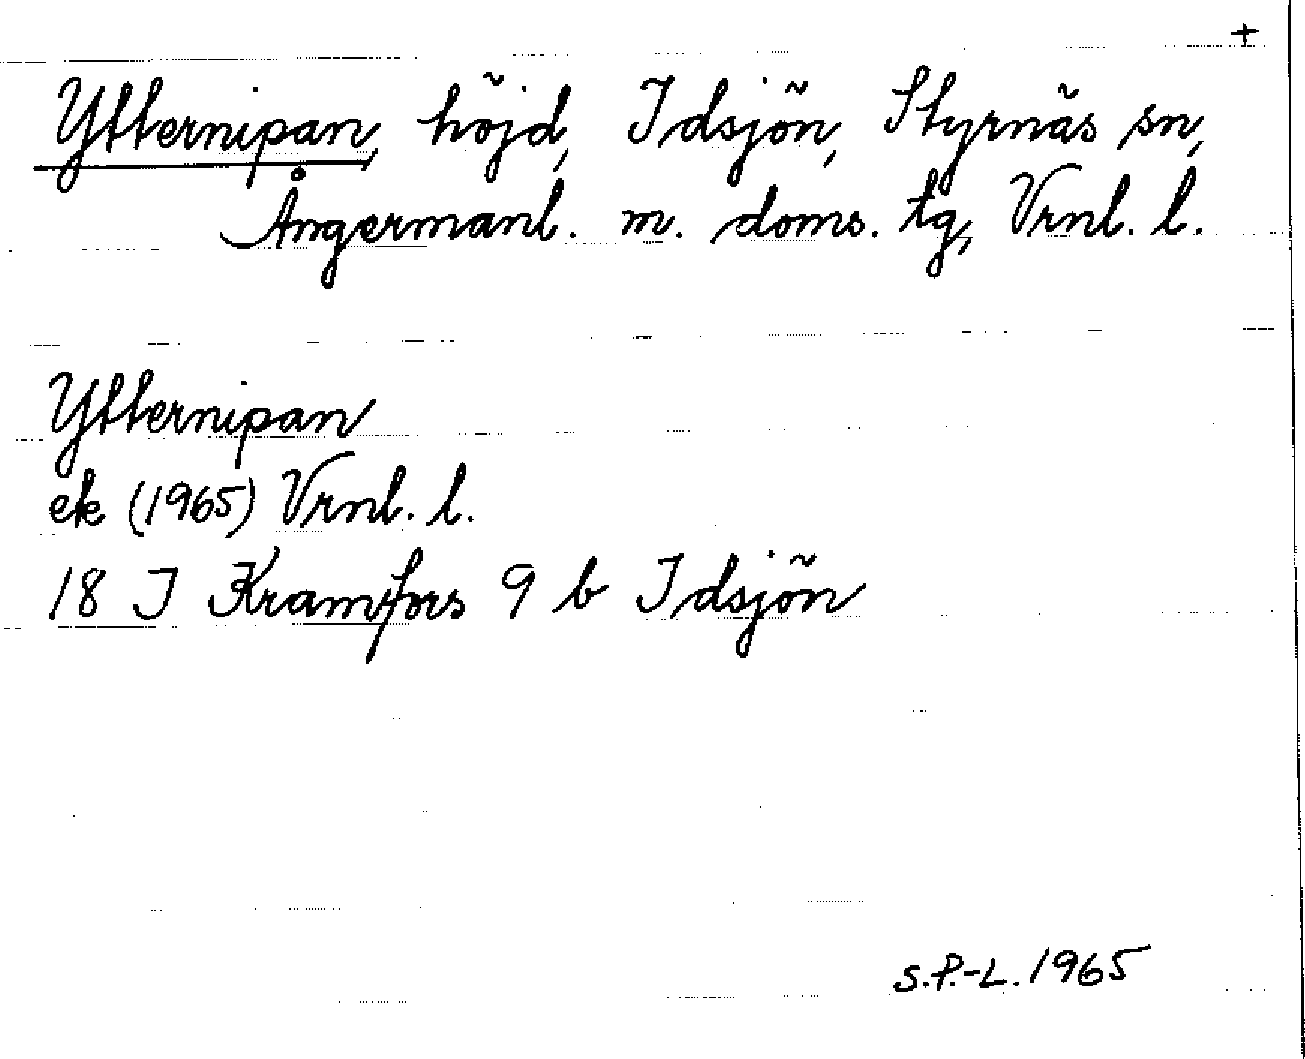 +
Ytternipan, höjd, Idsjön, Styrnäs sn,
Ångermanl. m. doms. tg, Vrnl. l.
Ytternipan
ek (1965) Vrnl. l.
18 I Kramfors 9 b Idsjön
S.P.-L. 1965